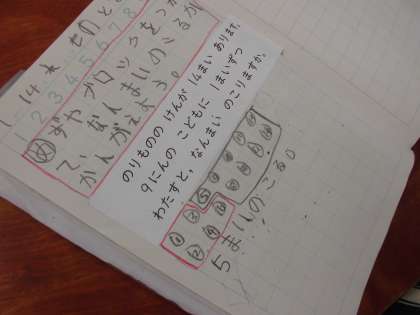 1 2 3 4 5 6 7 8
め ずやブロックをつか
て、なんまいのこるか
かんがえよう。
のりものの けんが 14まい あります。
9にんの こどもに 1まいずつ
わたすと、なんまい のこりますか。
5まいのこる。